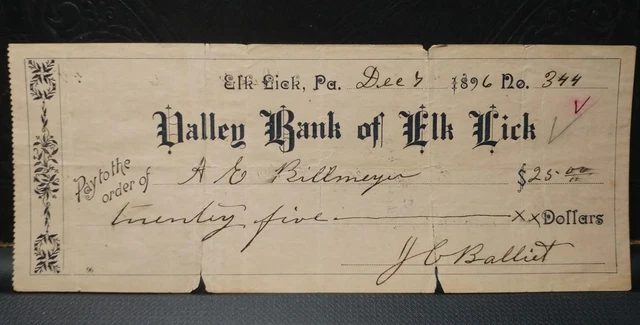 Elk Lick, Pa. Dec 7 1896 No. 344
Valley Bank of Elk Lick
Pay to the order of A E Billmeyer $25.00
twenty five xx Dollars
J C Balliet
96